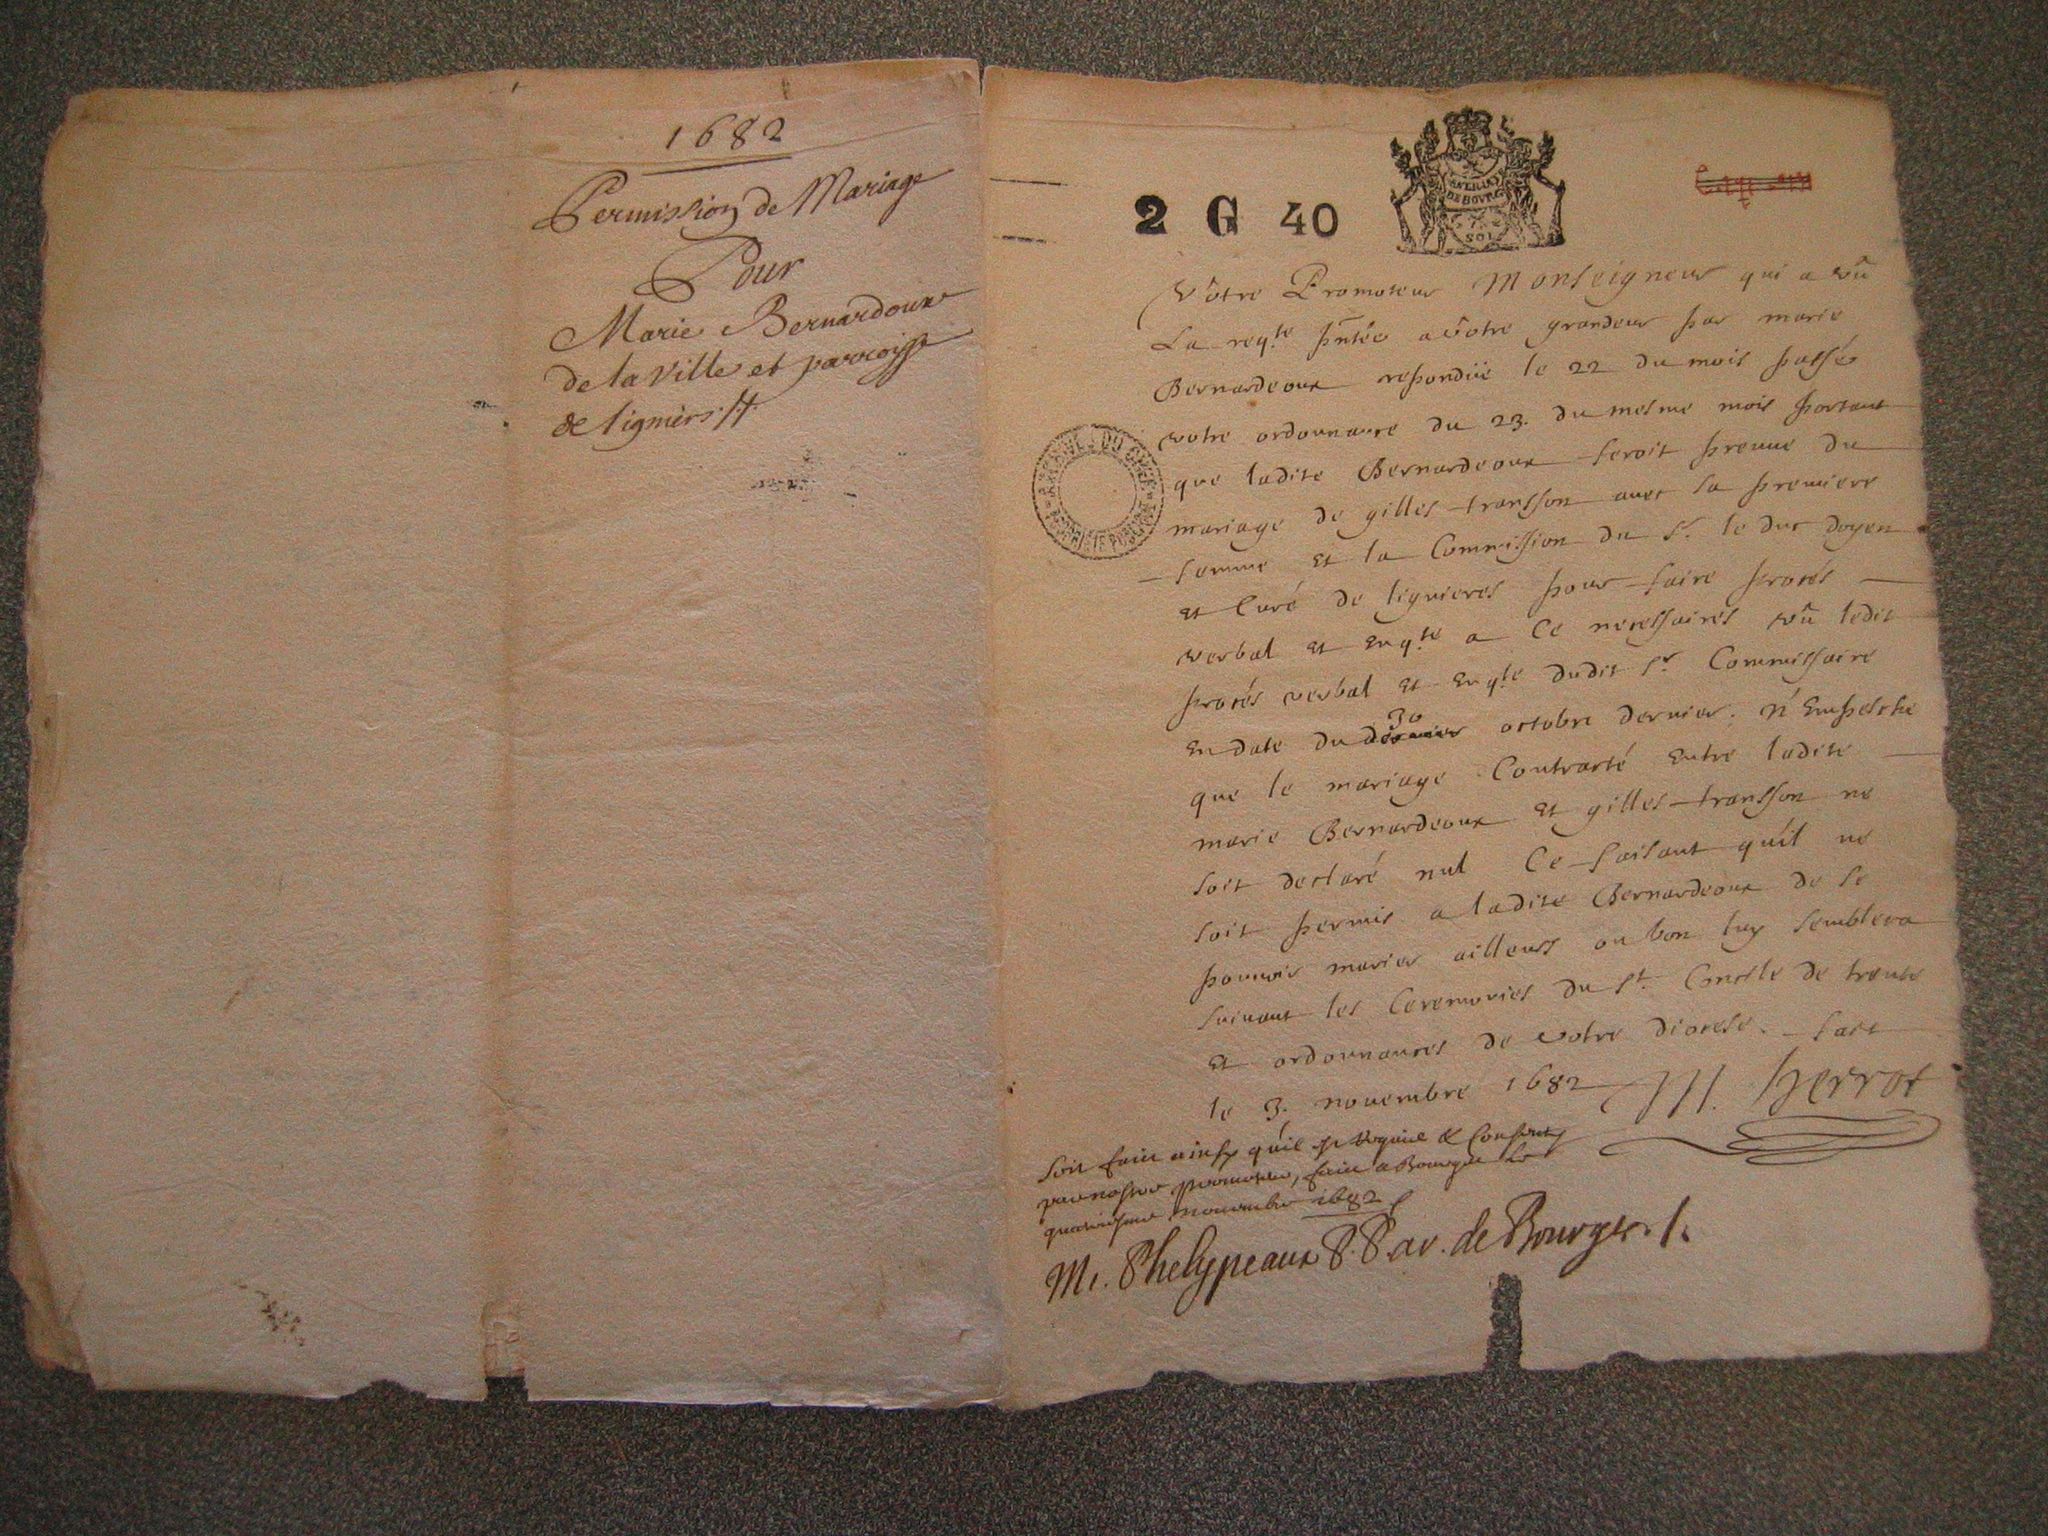 1682
Permission de Mariage
Pour
Marie Bernardoux
de la Ville et parroisse
de ligniers
2 G 40
GNLLITE
DE BOVRG
SOL
Vôtre Promoteur Monseigneur qui a vû
La reqte pntée a vôtre grandeur par marie
Bernardeoux repondüe le 22 du mois passé
votre ordonnance du 23. du mesme mois portant
que ladite Bernardeoux feroit preuve du
mariage de gilles transson avec sa premiere
femme et la Commission du sr. le duc doyen
et Curé de lignieres pour faire procés
verbal et enqte a Ce necessaires vû ledit
procés verbal et enqte dudit sr Commissaire
en date du 30 octobre dernier. n'empesche
que le mariage Contracté entre ladite
marie Bernardeoux et gilles transson ne
soit declaré nul Ce faisant qu'il ne
soit permis a ladite Bernardeoux de se
pouvoir marier ailleurs ou bon luy semblera
suivant les Ceremonies du st. Concile de trente
et ordonnances de votre diocese. fait
le 3. novembre 1682 M. perrot
soit faict ainsy qu'il est Requis & Consenty
par nostre promoteur, faict a Bourges le
quatriesme novembre 1682
M. Phelypeaux P. P. ar. de Bourges